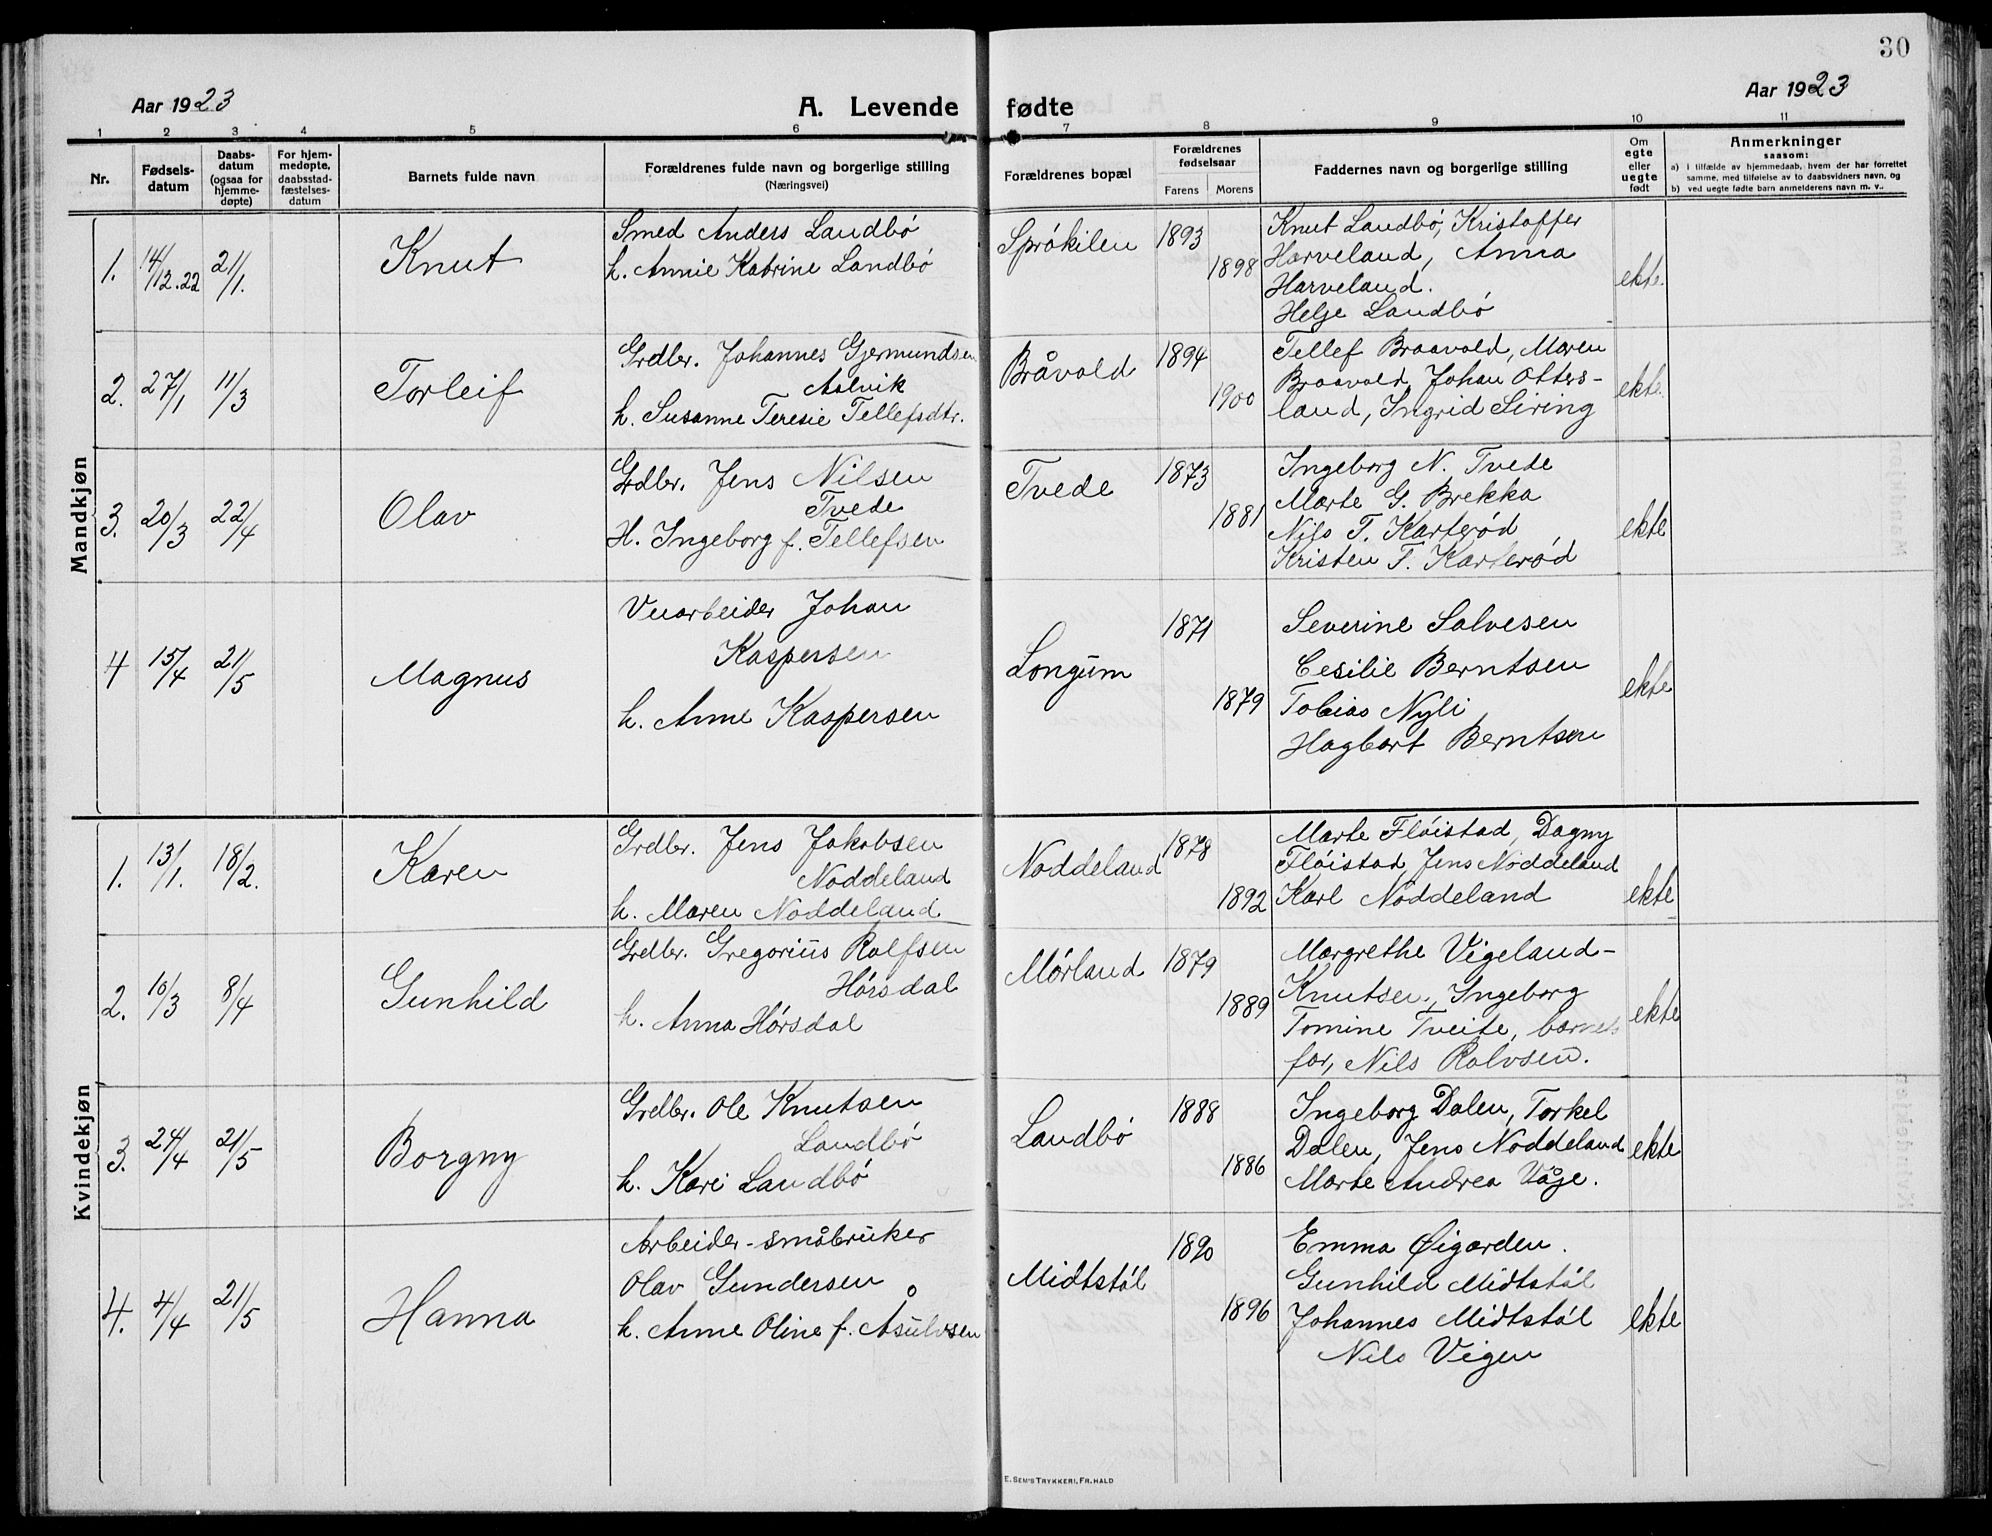 30
Aar 1923
A. Levende fødte
Aar 1923
1 2 3 4 5 6 7 8 9 10 11
Nr.
Fødsels-
datum
Daabs-
datum
(ogsaa for
hjemme-
døpte)
For hjem-
medøpte,
daabsstad-
fæstelses-
datum
Barnets fulde navn
Forældrenes fulde navn og borgerlige stilling
(Næringsvei)
Forældrenes bopæl
Forældrenes
fødselsaar
Farens Morens
Faddernes navn og borgerlige stilling
Om
egte
eller
uegte
født
Anmerkninger
saasom:
a) i tilfælde av hjemmedaab, hvem der har forrettet
samme, med tilføielse av to daabsvidners navn, og
b) ved uegte fødte barn anmelderens navn m. v..
Mandkjøn
1. 14/12.22 21/1. Knut
Smed Anders Landbø
h. Annie Katrine Landbø
Sprøkilen 1893 1898
Knut Landbø, Kristoffer
Harveland, Anna
Harveland.
Helje Landbø
ekte.
2. 27/1 11/3 Torleif
Grdbr. Johannes Gjermundsen
Aalvik
h. Susanne Teresie Tellefsdtr.
Bråvold 1894 1900
Tellef Braavold, Maren
Braavold, Johan Otters-
land, Ingrid Siring
ekte.
3. 20/3 22/4 Olav
Grdbr. Jens Nilsen
Tvede
H. Ingeborg f. Tellefsen
Tvede 1873 1881
Ingeborg N. Tvede
Marte G. Brekka
Nils T. Karterød
Kristen T. Karterød
ekte
4 15/4 21/5 Magnus
Veiarbeider Johan
Kaspersen
h. Anne Kaspersen
Longum 1871 1879
Severine Salvesen
Cesilie Berntsen
Tobias Nyli
Hagbart Berntsen
ekte
Kvindekjøn
1. 13/1. 18/2. Karen
Grdbr. Jens Jakobsen
Noddeland
h. Maren Noddeland
Noddeland 1878 1892
Marte Fløistad, Dagny
Fløistad, Jens Noddeland
Karl Noddeland
ekte
2. 10/3 8/4 Gunhild
Grdbr. Gregorius Rolfsen
Hørsdal
h. Anna Hørsdal
Mørland 1879 1889
Margrethe Vigeland-
Knutsen, Ingeborg
Tomine Tveite, barnets
far, Nils Rolvsen.
ekte
3. 24/4 21/5 Borgny
Grdbr. Ole Knutsen
Landbø
h. Kari Landbø
Landbø 1888 1886
Ingeborg Dalen, Torkel
Dalen, Jens Noddeland
Marte Andrea Våje.
ekte
4. 4/4 21/5 Hanna
Arbeider-småbruker
Olav Gundersen
h. Anne Oline f. Åsulvsen
Midtstøl 1890 1896
Emma Øigarden.
Gunhild Midtstøl
Johannes Midtstøl
Nils Vigen
ekte
E. SEM'S TRYKKERI, FR.HALD